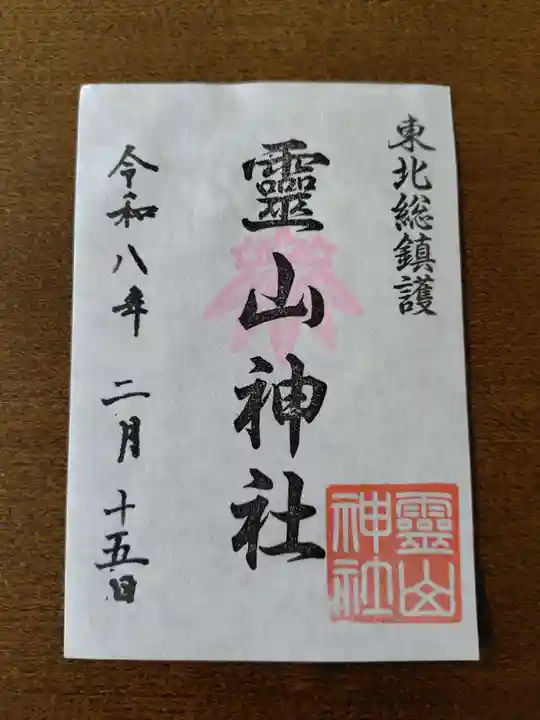 東北総鎮護
靈山神社
令和八年 二月 十五日
靈山
神社